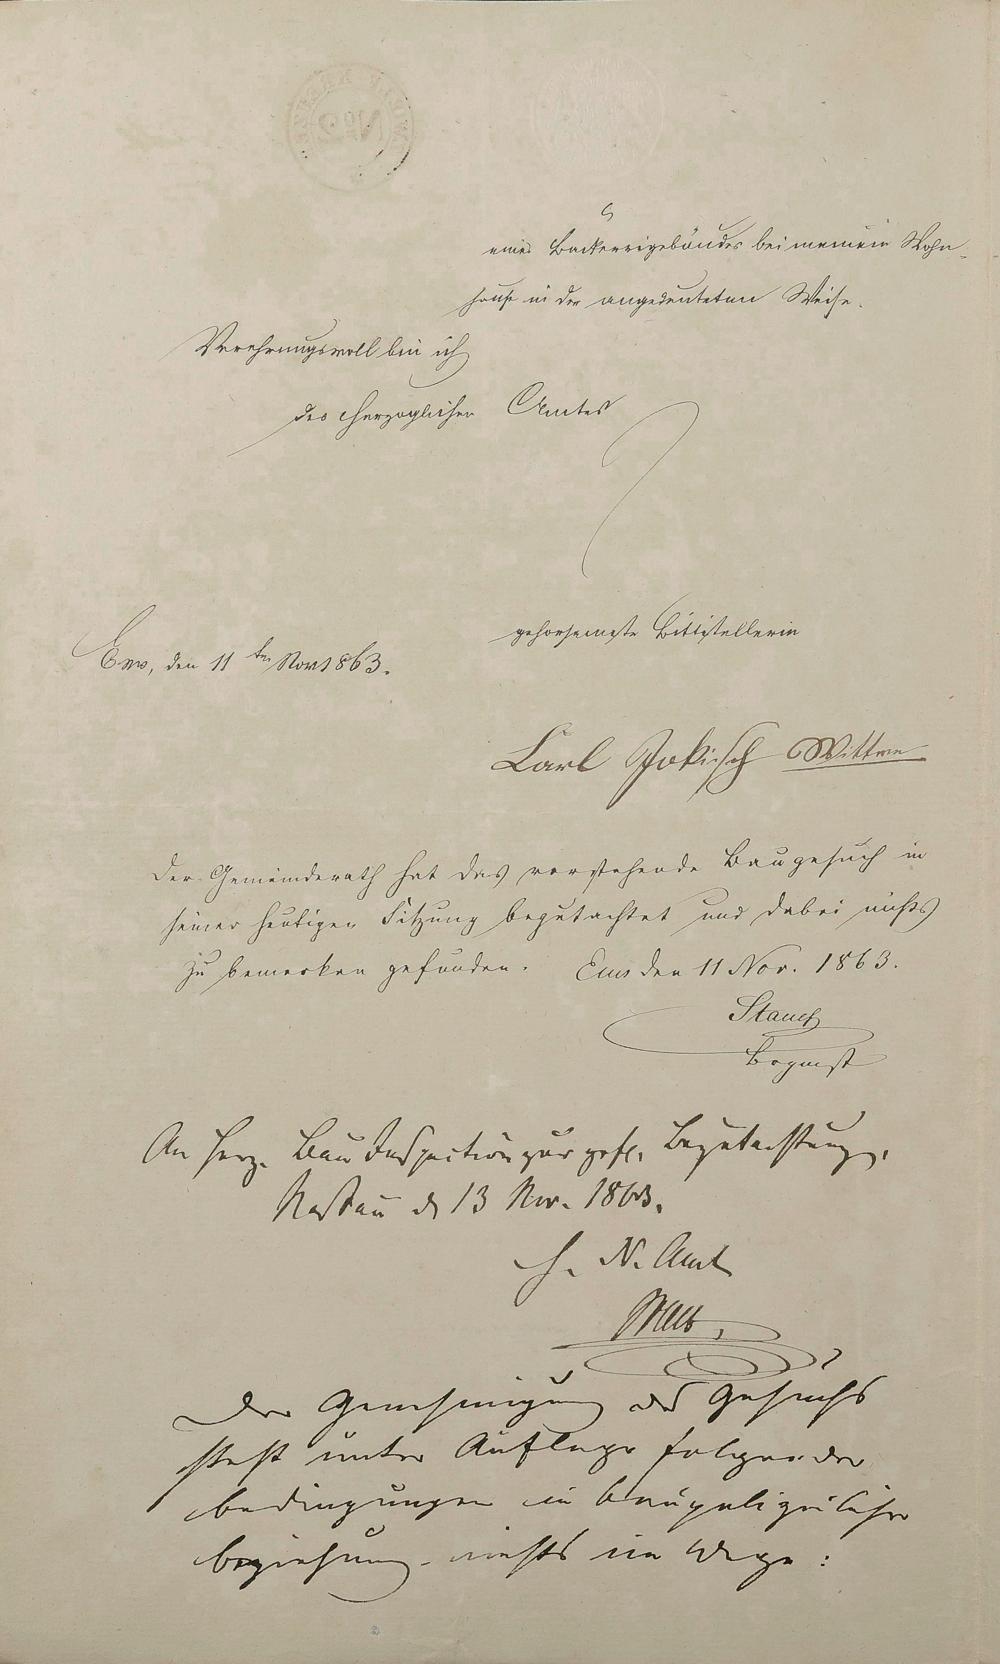 eines Backereigebäudes bei meinem Wohn-
hause in der angedeuteten Weise.
Verehrungsvoll bin ich
des Herzoglichen Amtes
gehorsamste Bittstellerin
Ems, den 11ten Nov 1863.
Carl Jokisch Wittwe
Der Gemeinderath hat das vorstehende Baugesuch in
seiner heutigen Sitzung begutachtet und dabei nichts
zu bemerken gefunden. Ems den 11 Nov. 1863.
An Herz. Bau Inspection zur gefl. Begutachtung.
Nassau d 13 Nov. 1863.
H. N. Amt
Der Genehmigung des Gesuchs
steht unter Auflage folgender
Bedingungen in baupolizeilicher
Beziehung nichts im Wege: